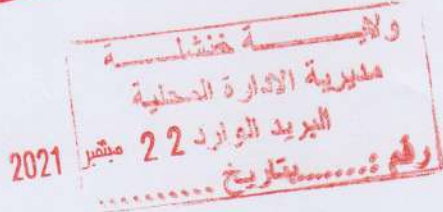 ولايـــــــــــة خنشلـــــــة
مديرية الادارة المحلية
البريد الوارد 22 سبتمبر 2021
رقم :.......بتاريخ ..........